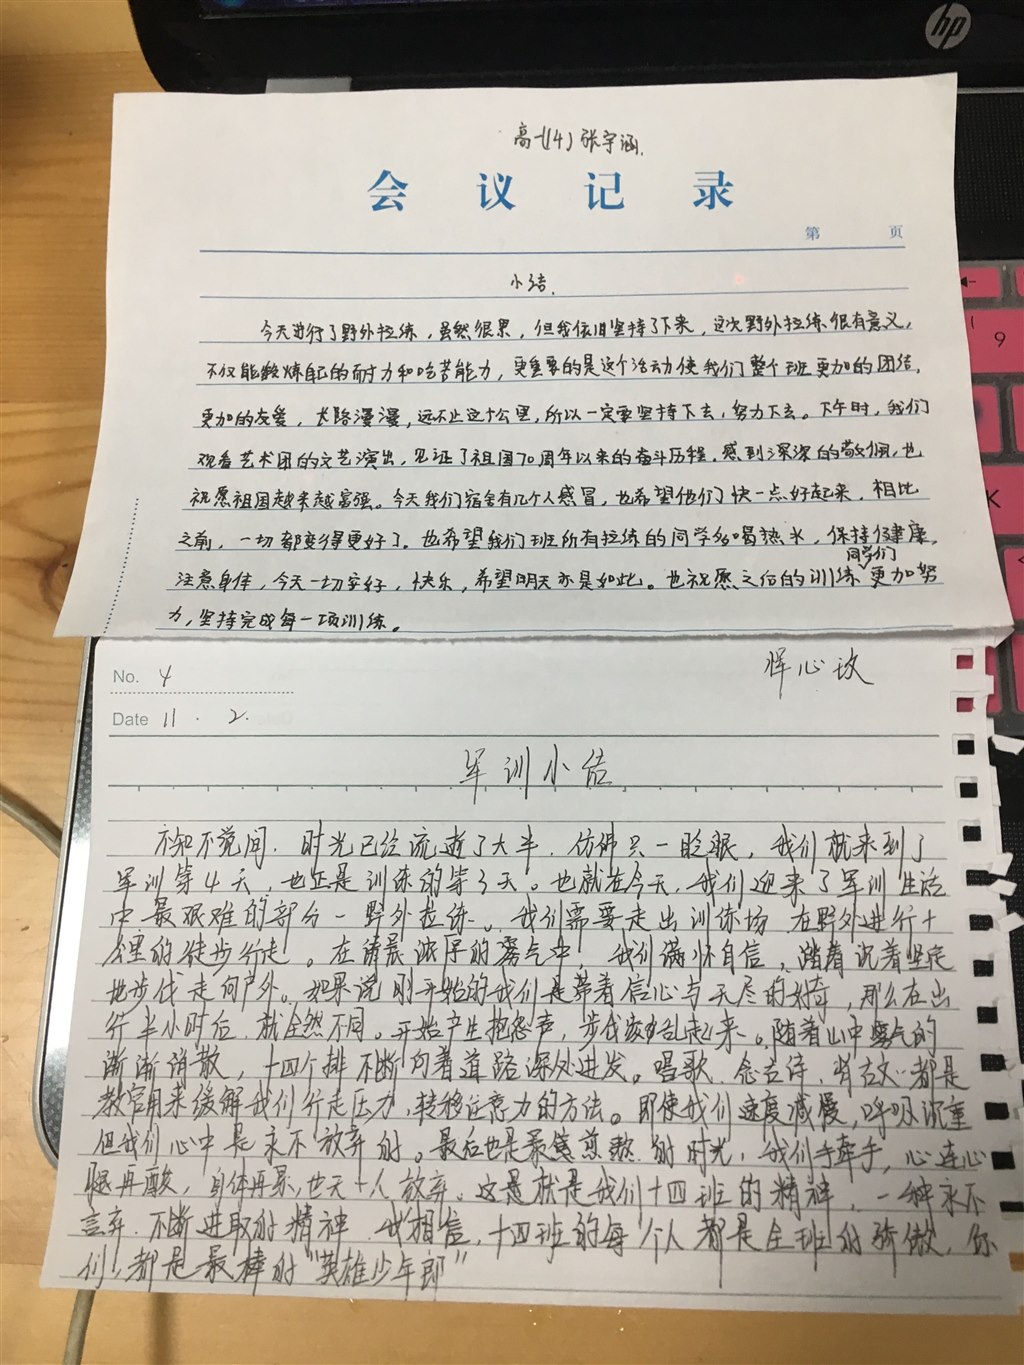 hp
高一(14) 张宇涵.
会议记录
第 页
小结.
今天进行了野外拉练，虽然很累，但我依旧坚持了下来，这次野外拉练很有意义，
不仅能锻炼自己的耐力和吃苦能力，更重要的是这个活动使我们整个班更加的团结，
更加的友爱，长路漫漫，远不止这十公里，所以一定要坚持下去，努力下去。下午时，我们
观看艺术团的文艺演出，见证了祖国70周年以来的奋斗历程，感到深深的敬佩，也
祝愿祖国越来越富强。今天我们宿舍有几个人感冒，也希望他们快一点好起来，相比
之前，一切都变得更好了。也希望我们班所有拉练的同学多喝热水，保持健康，
注意身体，今天一切安好，快乐，希望明天亦是如此。也祝愿之后的训练同学们更加努
力，坚持完成每一项训练。
No. 4
恽心玫
Date 11 . 2.
军训小结
不知不觉间，时光已经流逝了大半，仿佛只一眨眼，我们就来到了
军训第4天，也正是训练的第3天。也就在今天，我们迎来了军训生活
中最艰难的部分－野外拉练。我们需要走出训练场，在野外进行十
公里的徒步行走。在清晨浓厚的雾气中，我们满怀自信，踏着沉着坚定
地步伐走向户外。如果说刚开始的我们是带着信心与无尽的好奇，那么在出
行半小时后，就全然不同。开始产生抱怨声，步伐凌乱起来。随着山中雾气的
渐渐消散，十四个排不断向着道路深处进发。唱歌、念古诗、背古文…都是
教官用来缓解我们行走压力，转移注意力的方法。即使我们速度减慢，呼吸沉重
但我们心中是永不放弃的。最后也是最煎熬的时光，我们手牵手，心连心
腿再酸，身体再累，也无一人放弃。这是就是我们十四班的精神，一种永不
言弃，不断进取的精神。我相信，十四班的每个人都是全班的骄傲，你
们，都是最棒的“英雄少年郎”